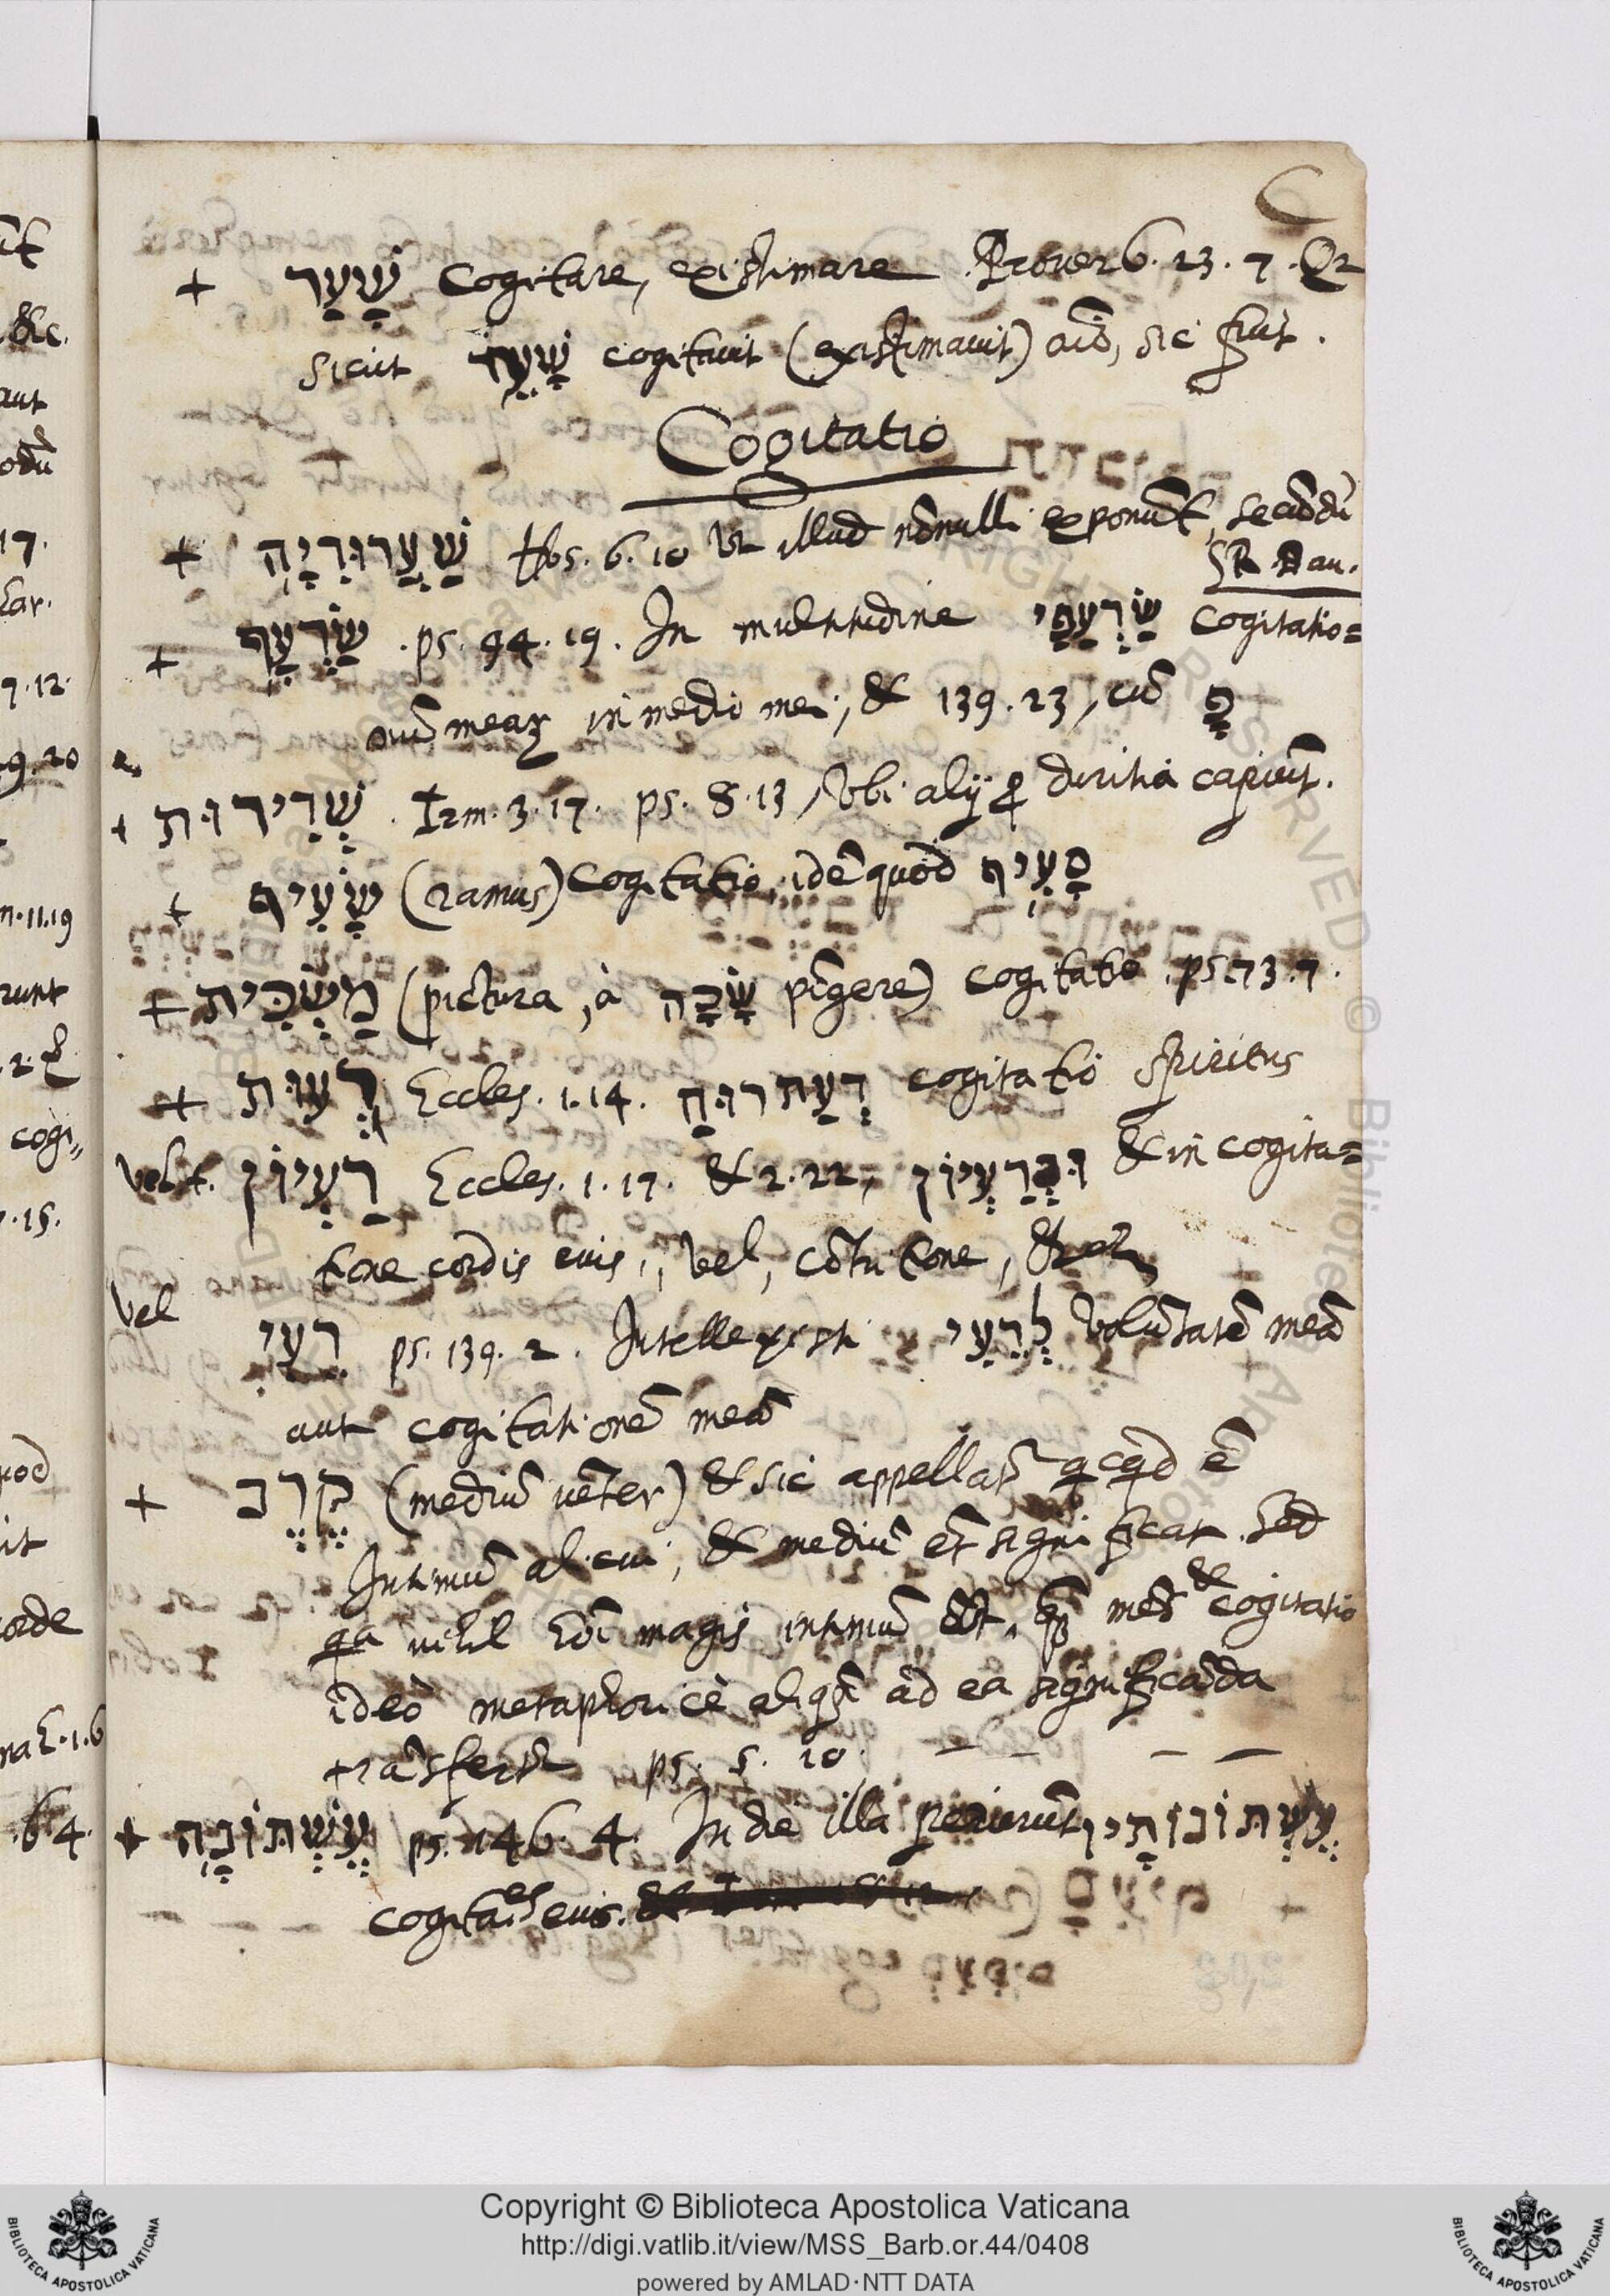 C
+ שָׁעַר Cogitare, existimare. Proverb. 23. 7. Qr
sicut שָׁעַר cogitavit (existimavit) aīō, sic fuit.
Cogitatio
+ שַׁעֲרוּרִיָה Hos. 6. 10 vt illud nōnulli exponūt, secūdū
R Dau.
+ שַׂרְעָף . ps. 94. 19. In multitudine שַׂרְעַפַּי cogitatio=
nū mearꝝ in medio mei, & 139. 23, cū פָּ
+ שְׁרִירוּת . Irm. 3. 17. ps. 8. 13, Vbi alij ꝓ duritia capiūt.
+ שָׂעִיף (ramus) cogitatio, idē quod סָעִיף
+ מַשְׂכִּית (pictura, à שָׂכָה pīgere) cogitatio. ps. 73. 7.
+ רְעוּת Eccles. 1. 14. רְעַת רוּחַ cogitatio spiritus
vel +. רַעְיוֹן Eccles. 1. 17. & 2. 22, וּבְרַעְיוֹן & in cogita=
tione cordis euis, vel, cōtritione,
vel
רֵעַי ps. 139. 2. Intellexisti לְרֵעִי volūtatē meā
aut cogitationē meā
+ קֶרֶב (mediū vēter) & sic appellat̄ qcqd ē
Intimū alicui, & mediū et̄ significat. Sed
qa nihil magis intimū est, mēs & cogitatio
ideò metaphoricè aliqn̄ ad ea significāda
trāsfert̄ ps. 5. 10. — — — —
+ עֶשְׁתּוֹנָה ps. 146. 4. In die illa perierūt עֶשְׁתּוֹנוֹתָיו
cogita.es euis.
Copyright © Biblioteca Apostolica Vaticana
http://digi.vatlib.it/view/MSS_Barb.or.44/0408
powered by AMLAD·NTT DATA